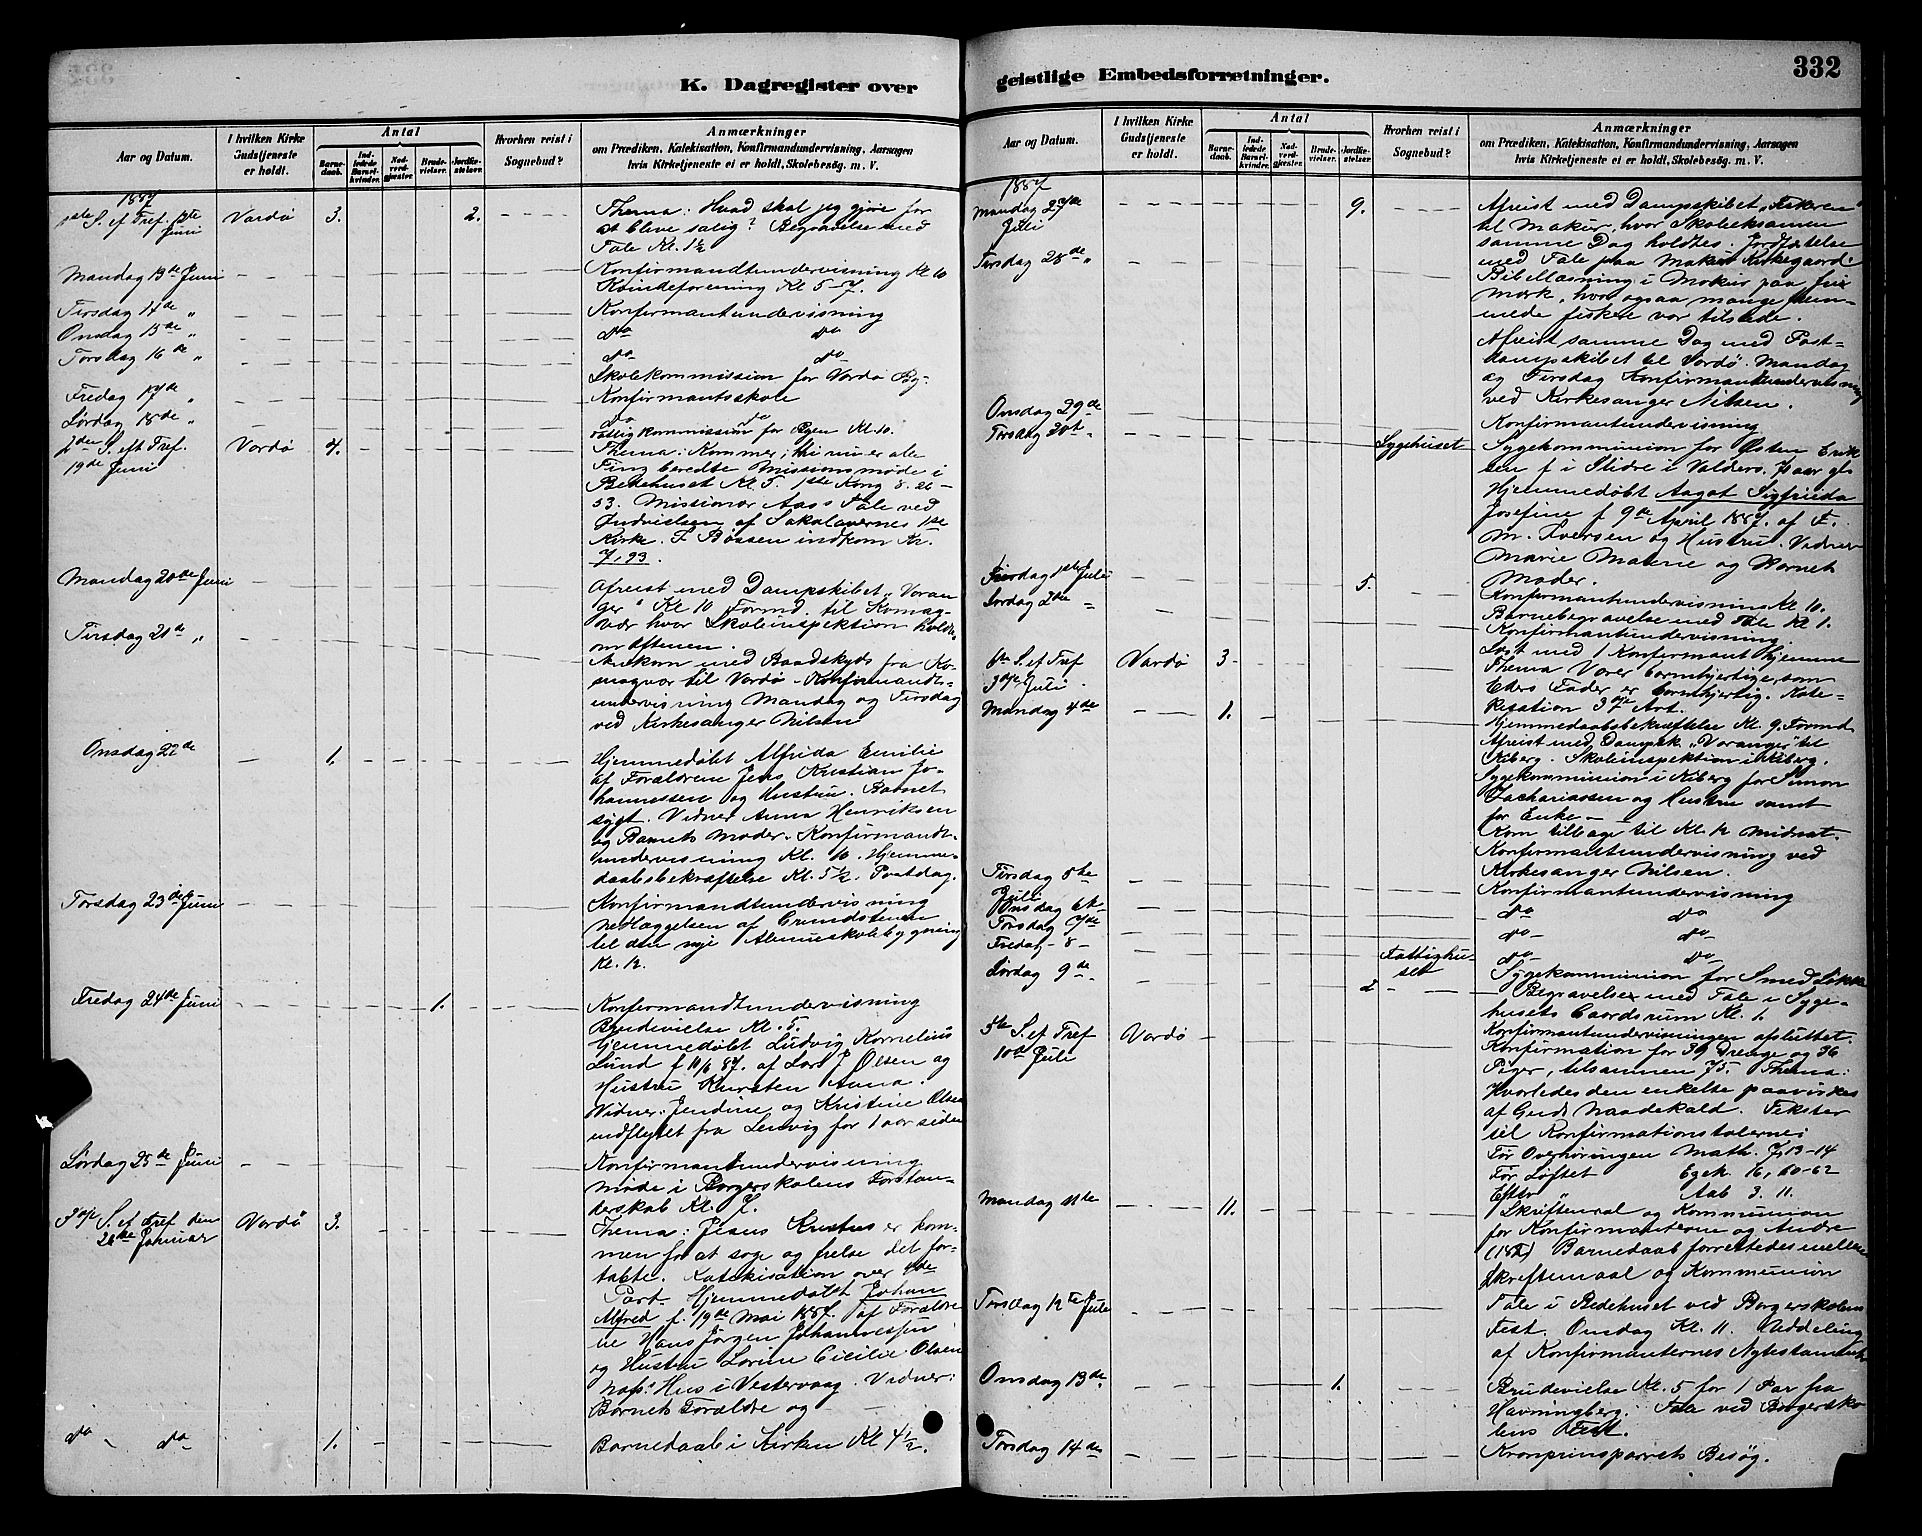 332
K. Dagregister over
geistlige Embedsforretninger.
Aar og Datum.
I hvilken Kirke Gudstjeneste er holdt.
Antal
Barnedaab.
Indledede Barselkvinder.
Nadverdgjester.
Brudevielser.
Jordfæstelser.
Hvorhen reist i Sognebud?
Anmærkninger
om Prædiken, Katekisation, Konfirmandundervisning, Aarsagen
hvis Kirketjeneste ei er holdt, Skolebesøg. m. V.
1887
1ste S. ef Tref. 12te Juni Vardø 3. 2. Thema: Hvad skal jeg gjøre for
at blive salig? Begravelse med
Tale Kl. 1½
Mandag 13de Juni Konfirmandtundervisning Kl 10
Kvindeforening Kl 5-7.
Tirsdag 14de " Konfirmantundervisning
Onsdag 15de " do do
Torsdag 16de " do do
Skolekommission for Vardø By.
Fredag 17de " Konfirmantsskole
Lørdag 18de " do do
Fattigkommission for Byen Kl. 10.
2den S. eft Tref. Vardø 4. Thema: Kommer, thi nu er alle
19de Juni Ting beredte Missionsmøde i
Bedehuset Kl. 5. 1ste Kong 8. 26-
53. Missionær Aass Tale ved
Indvielsen af Sakalavernes 1ste
Kirke. I Bøssen indkom Kr.
7,93.
Mandag 20de Juni Afreist med Dampskibet "Varan-
ger" Kl 10 Formd. til Komag-
vær hvor Skoleinspektion holdtes
om Aftenen.
Tirsdag 21de " Ankom med Baadskyds fra Ko-
magvær til Vardø - Konfirmandts-
undervisning Mandag og Tirsdag
ved Kirkesanger Nilsen
Onsdag 22de 1. Hjemmedøbt Alfrida Emilie
af Forældrene Jens Kristian Jo-
hannessen og Hustru. Barnet
sygt. Vidner Anna Henriksen
og Barnets Moder. Konfirmandt-
undervisning Kl. 10. Hjemme-
daabsbekræftelse Kl. 5½. Postdag.
Torsdag 23de Juni Konfirmandtundervisning
Nedlæggelsen af Grundstenen
til den nye Almueskolebygning
Kl. 12.
Fredag 24de Juni 1. Konfirmandtundervisning
Brudevielse Kl. 5.
Hjemmedøbt Ludvig Kornelius
Lund f 11/6 87. af Lars J Olsen og
Hustru Kirsten Anna.
Vidner: Jendine og Kristine Olsen
indflyttet fra Lenvig for 1 aar siden
Lørdag 25de Juni Konfirmantundervisning
Møde i Borgerskolens Forstan-
derskab Kl. 7.
3die S. ef Tref den Vardø 3. Thema: Jesus Kristus er kom-
26de Januar men for at søge og frelse det for-
tabte. Katekisation over 4de
Part. Hjemmedøbt Johan
Alfred f. 19de Mai 1887. af Forældre-
ne Hans Jørgen Johannessen
og Hustru Lorine Cicilie Olsen
Hus i Vestervaag. Vidner:
Barnets Forældre og -
do - do 1. Barnedaab i Kirken Kl 4½.
Aar og Datum.
I hvilken Kirke Gudstjeneste er holdt.
Antal
Barnedaab.
Indledede Barselkvinder.
Nadverdgjester.
Brudevielser.
Jordfæstelser.
Hvorhen reist i Sognebud?
Anmærkninger
om Prædiken, Katekisation, Konfirmandundervisning, Aarsagen
hvis Kirketjeneste ei er holdt, Skolebesøg. m. V.
1887
Mandag 27de 9. Afreist med Dampskibet "Fiskeren"
Juli til Makur, hvor Skoleeksamen
samme Dag holdtes. Jordfæstelse
Tirsdag 28de " med Tale paa Makur Kirkegaard.
Bibellæsning i Makur paa fri
Mark, hvor ogsaa mange frem-
mede fiskere var tilstede.
Afreist samme Dag med Post-
dampskibet til Vardø. Mandag
og Tirsdag Konfirmantundervisning
ved Kirkesanger Nilsen.
Onsdag 29de Konfirmantundervisning
Torsdag 30te Sygehuset Sygekommunion for Østen Erik-
sen f i Slidre i Valders.
Hjemmedøbt Aagot Sigfrida
Josefine f 9de April 1887. af F.
M. Iversen og Hustru. Vidner
Marie Malene og Barnets
Moder.
Fredag 1ste Juli 5. Konfirmantundervisning Kl 10.
Lørdag 2de Barnebegravelse med Tale Kl 1.
Konfirmantundervisning.
Læst med 1 Konfirmant Hjemme
4de S. ef Tref Vardø 3 Thema Værer barmhjertige, som
3die Juli Eders Fader er barmhjertig. Kate-
kisation 3die Art.
Mandag 4de 1. Hjemmedaabsbekræftelse Kl. 9 Formd.
Afreist med Dampsk. "Varanger" til
Kiberg. Skoleinspektion i Kiberg.
Sygekommunion i Kiberg for Simon
Zachariassen og Hustru samt
for Enke -
Kom tilbage til Kl. 12 Midnat.
Konfirmantundervisning ved
Kirkesanger Nilsen.
Tirsdag 5te Juli Konfirmantundervisning
Onsdag 6te do do
Torsdag 7de do do
Fredag - 8 - do do
Lørdag 9de 2 Fattighuset Sygekommunion for Smed
Begravelse med Tale i Syge-
husets Gaardsrum Kl. 1.
Konfirmantundervisningen afsluttet.
5te S. ef Tref Vardø Konfirmation for 39 Drenge og 36
10de Juli Piger, tilsammen 75. Thema:
Hvorledes den enkelte paavirkes
af Guds Naadekald. Tekster
til Konfirmationstalerne:
Før Overhøringen Math. 7, 13-14
Før Løftet Ezek. 16, 60-62
Efter Aab 3. 11.
Mandag 11te 11. Skriftemaal og Kommunion
for Konfirmanterne og Andre
Barnedaab forrettedes mellem
Skriftemaal og Kommunion
Torsdag 12te Juli Tale i Bedehuset ved Borgerskolens
Fest. Onsdag Kl. 11. Uddeling
af Konfirmanternes Nytestamente
Onsdag 13de 1. Brudevielse Kl. 5 for 1 Par fra
Havningberg. Tale ved Borgersko-
lens Fest.
Torsdag 14de Kronprinsparrets Besøg.